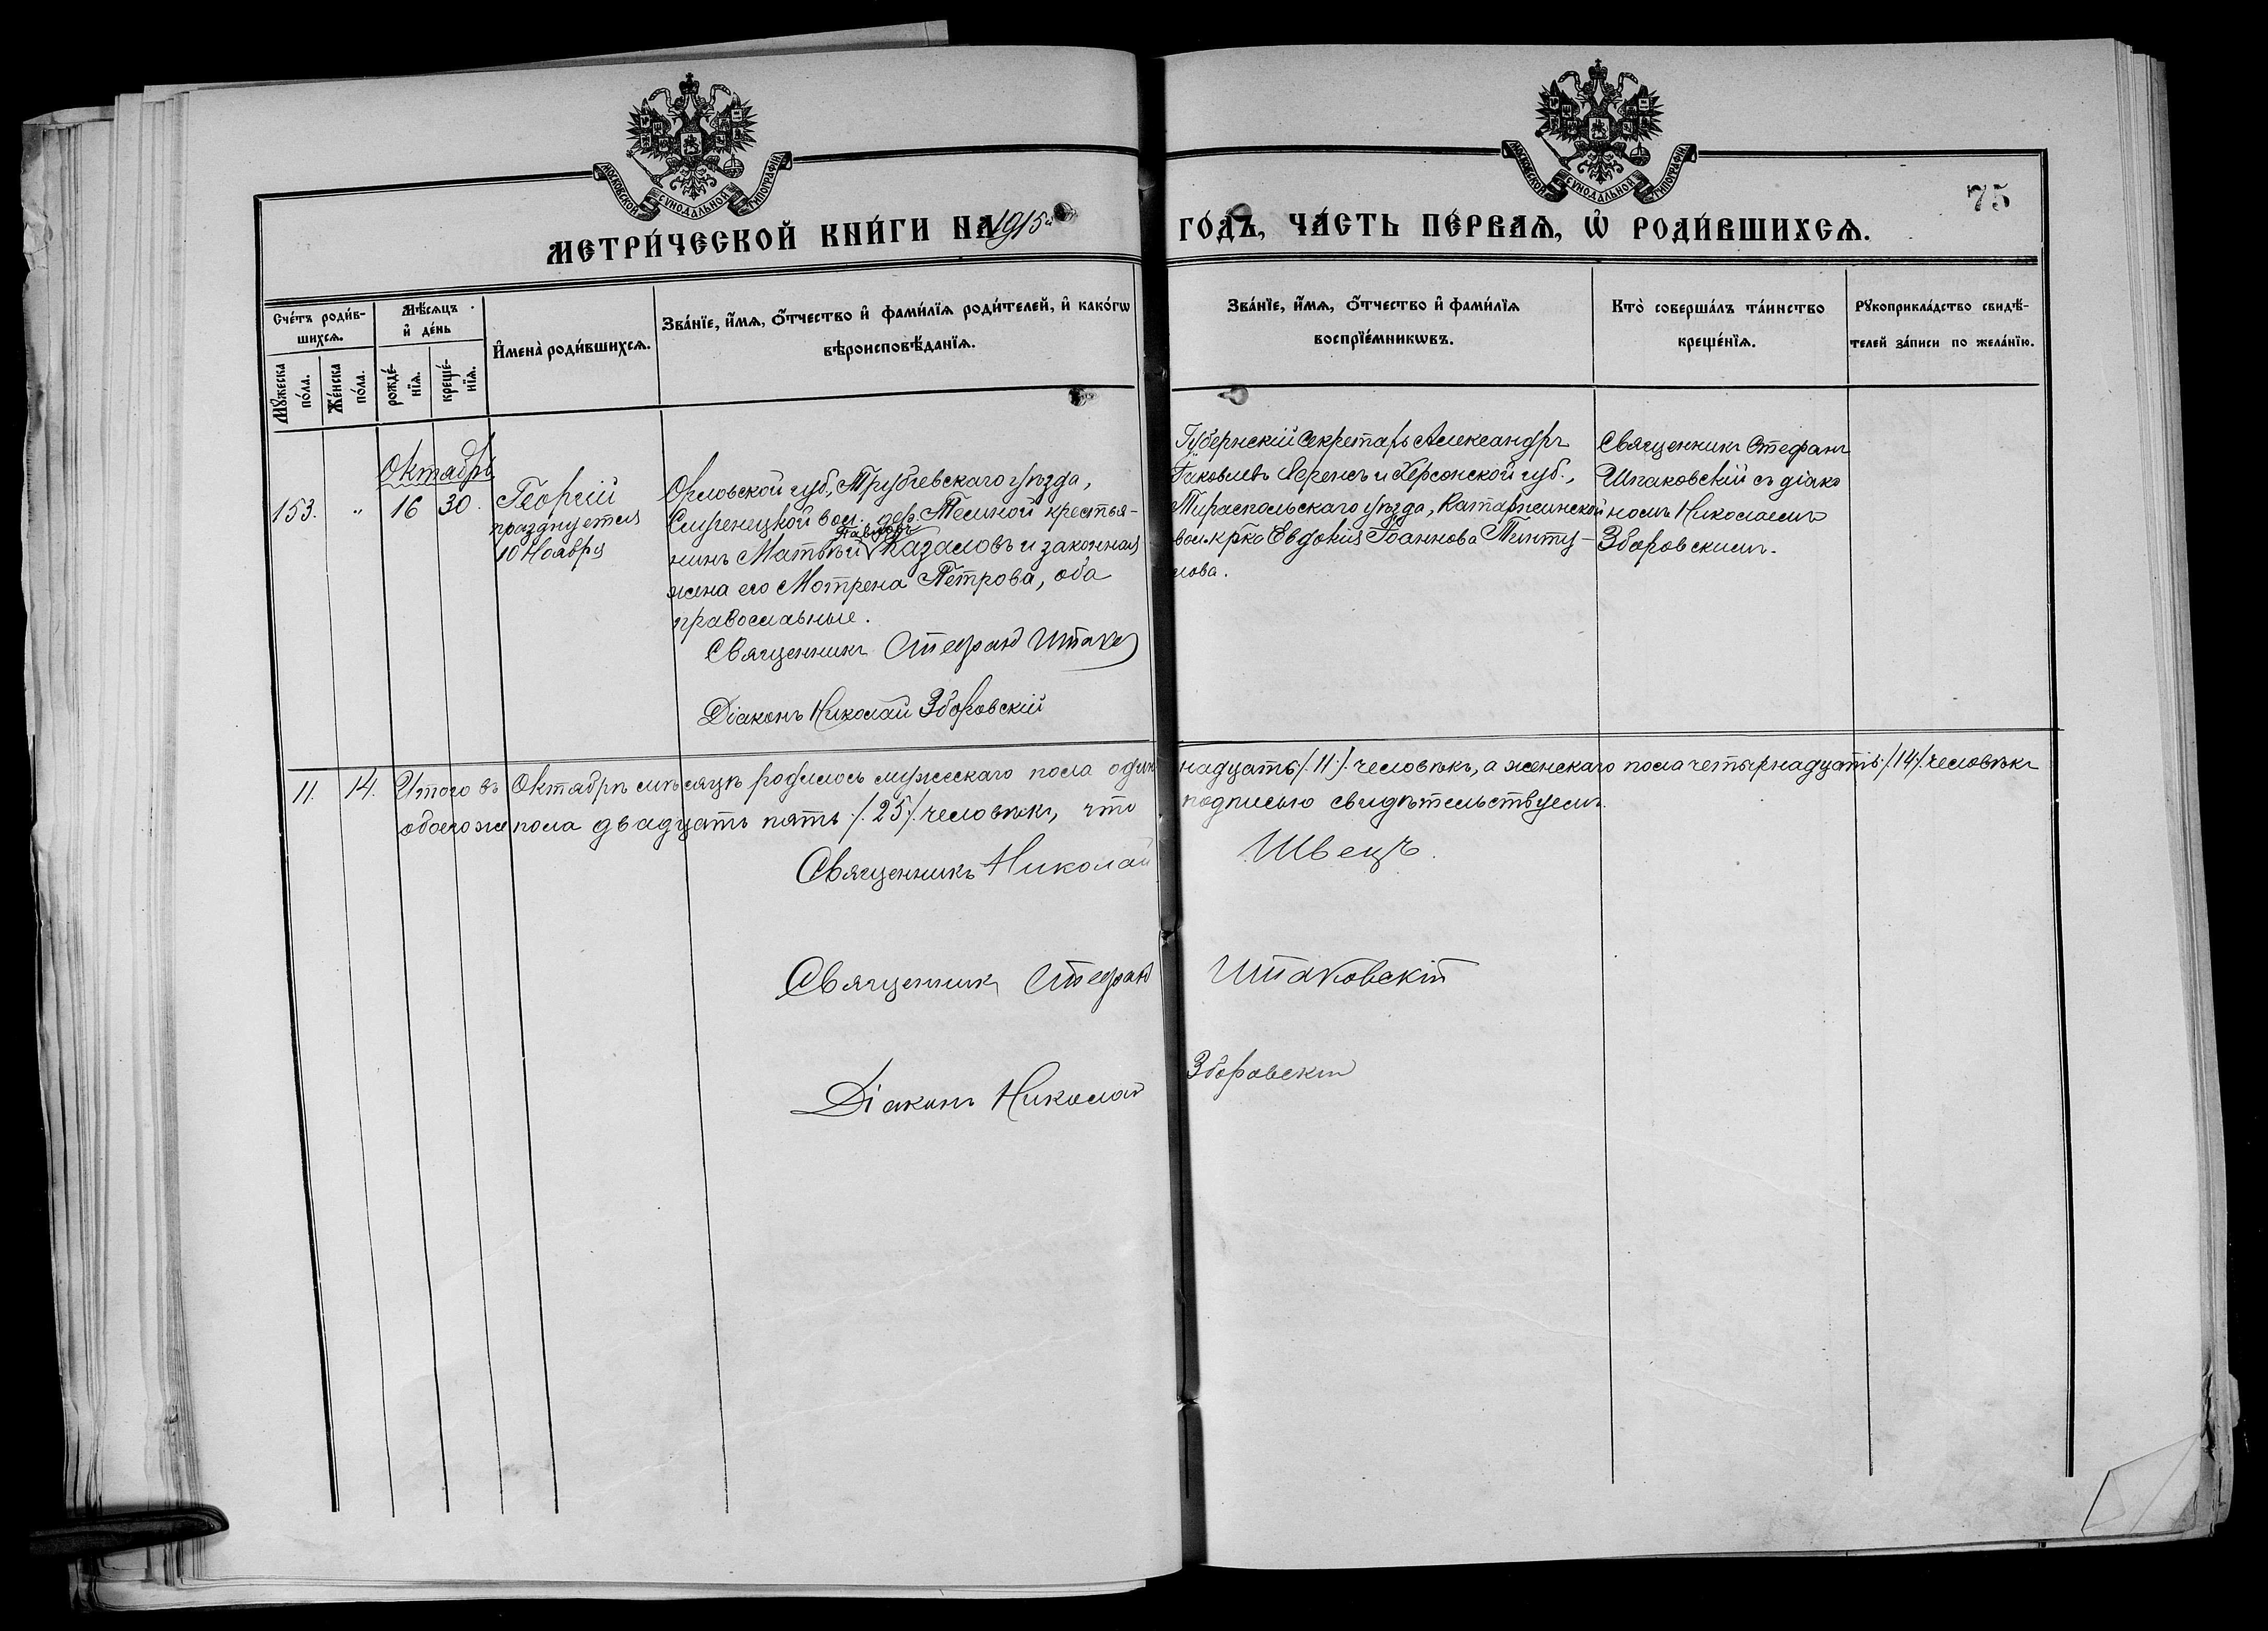 МОСКОВСКОЙ СѴНОДАЛЬНОЙ ТИПОГРАФІИ
МОСКОВСКОЙ СѴНОДАЛЬНОЙ ТИПОГРАФІИ
75
МЕТРИ́ЧЕСКОЙ КНИ́ГИ НА 1915й ГО́ДЪ, ЧА́СТЬ ПЕ́РВАѦ, Ѡ҆ РОДИ́ВШИХСѦ.
Сче́тъ роди́в-
шихсѧ.
Мѣ́сѧцъ
и҆ де́нь
И҆мена̀ роди́вшихсѧ.
Зва́нїе, и҆́мѧ, ѻ҆́тчество и҆ фами́лїѧ роди́телей, и҆ како́гѡ
вѣроисповѣ́данїѧ.
Зва́нїе, и҆́мѧ, ѻ҆́тчество и҆ фами́лїѧ
воспрїе́мникѡвъ.
Кто̀ соверша́лъ та́инство
креще́нїѧ.
Рꙋкоприкла́дство свидѣ́-
телей за́писи по жела́нїю.
Мꙋ́жеска
по́ла.
Же́нска
по́ла.
рожде́-
нїѧ.
креще́-
нїѧ.
Октябрь
153. " 16 30.
Георгій
празднуется
10 Ноября
Орловской губ., Трубчевскаго уѣзда,
вол. дер. Телиной крестья-
Павловъ
нинъ Матѳѣй Казаловъ и законная
жена его Мотрена Петрова, оба
православные.
Священникъ Стефанъ Шпаков
Діаконъ Николай Зборовскій
Губернскій Секретарь Александръ
Іаковлевъ и Херсонской губ.,
Тираспольскаго уѣзда, Катаржинской
вол. кр-ка Евдокія Іоаннова Тинту-
лова.
Священникъ Стефанъ
Шпаковскій съ діако
номъ Николаемъ
Зборовскимъ.
11. 14. Итого въ Октябрѣ мѣсяцѣ родилось мужескаго пола одиннадцать /.11./ человѣкъ, а женскаго пола четырнадцать /.14./ человѣкъ
обоего же пола двадцать пять /.25./ человѣкъ, что подписью свидѣтельствуемъ.
Священникъ Николай Швецъ.
Священникъ Стефанъ Шпаковскій
Діаконъ Николай Зборовскій